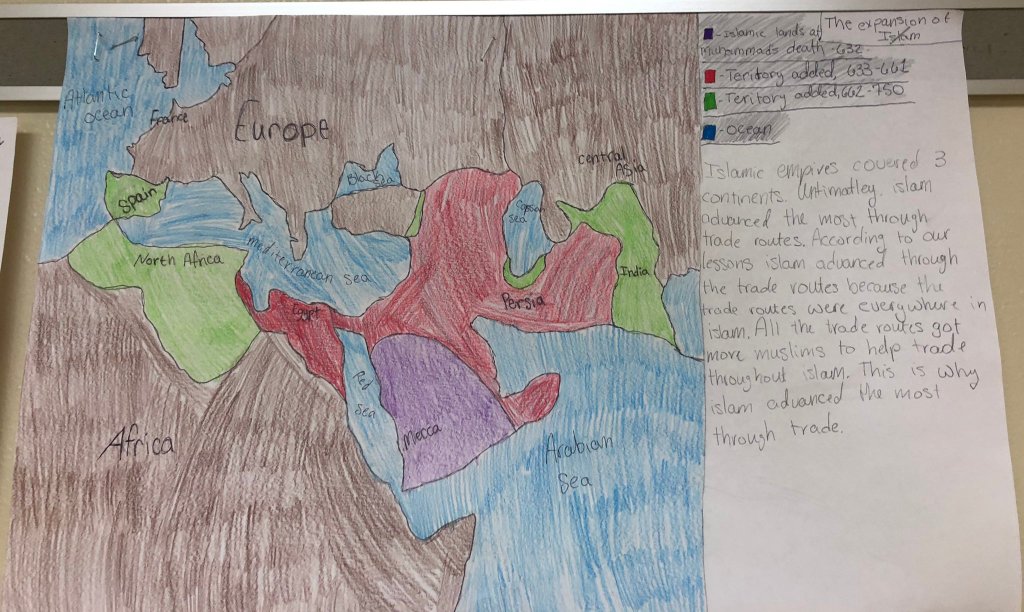 The expansion of
Islam
- Islamic lands at
Muhammads death - 632
- Teritory added, 633-661
- Teritory added, 662-750
- Ocean
Islamic empires covered 3
continents. Untimatley, islam
advanced the most through
trade routes. According to our
lessons islam advanced through
the trade routes because the
trade routes were everywhere in
islam. All the trade routes got
more muslims to help trade
throughout islam. This is why
islam advanced the most
through trade.
Atlantic
ocean
France
Europe
Black
sea
central
Asia
Spain
Caspian
sea
North Africa
mediterranean sea
India
Persia
Egypt
Red
Sea
Mecca
Africa
Arabian
Sea